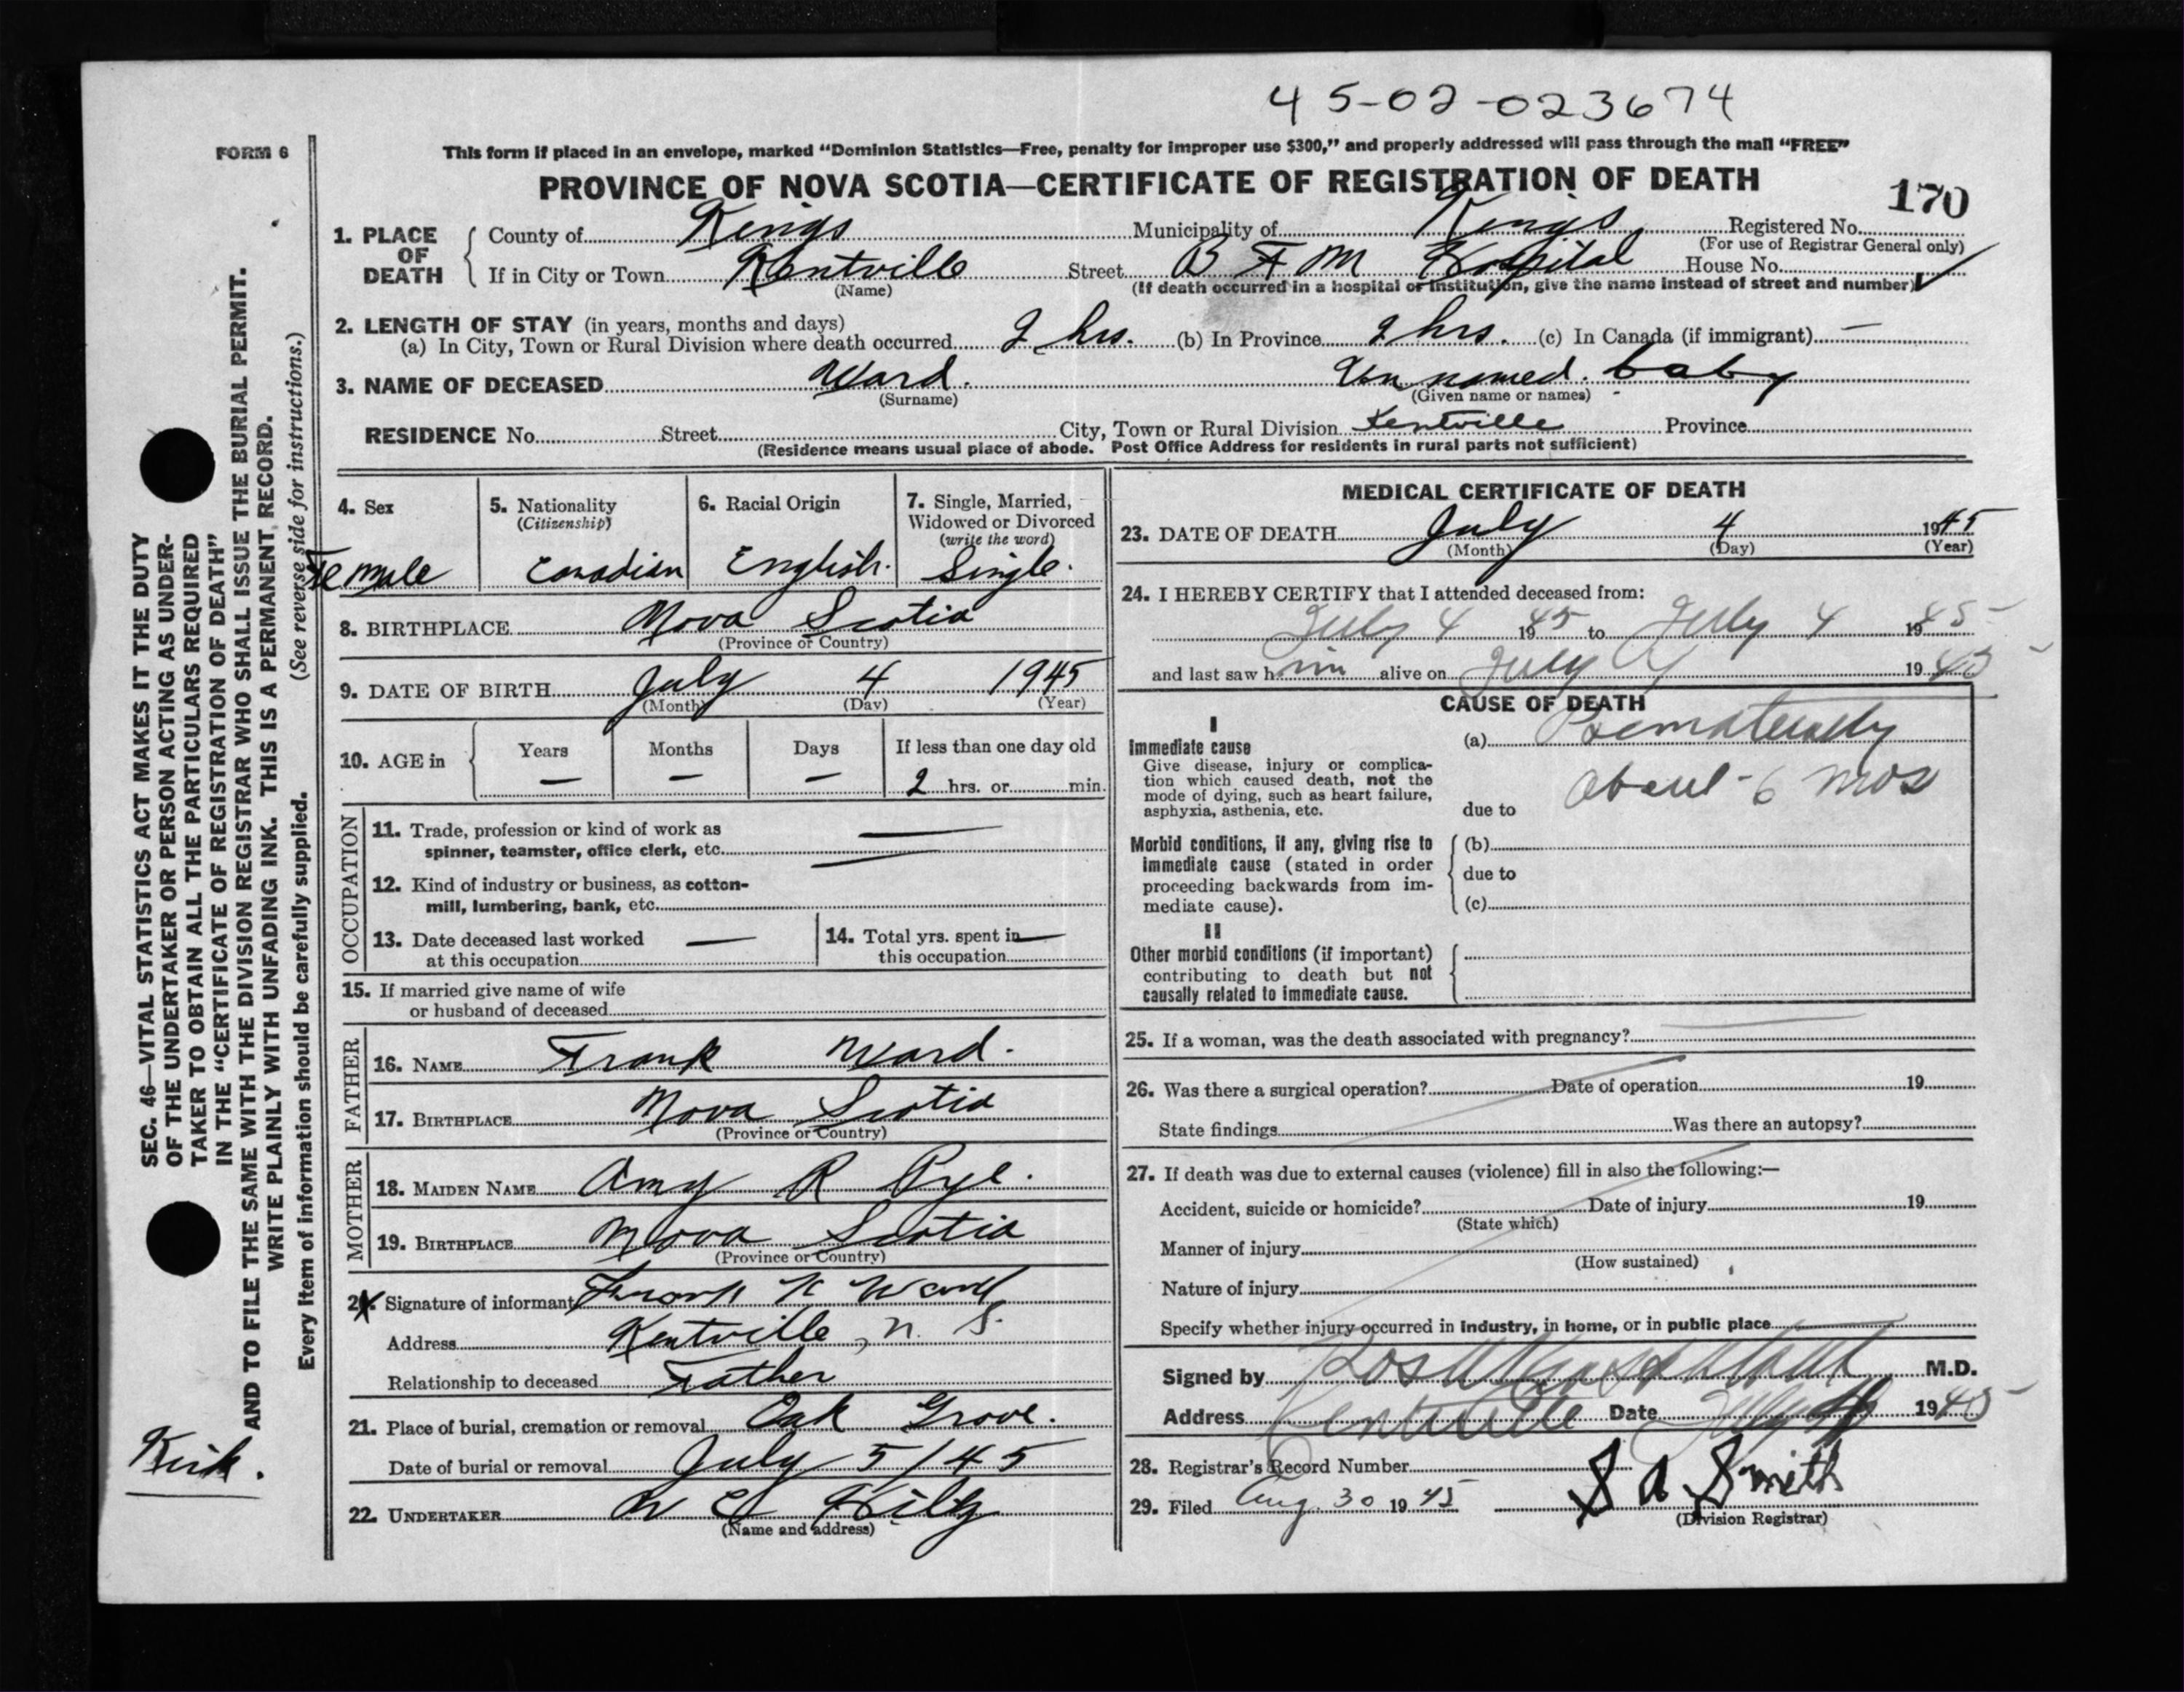 45-02-023674
FORM 6
This form if placed in an envelope, marked "Dominion Statistics—Free, penalty for improper use $300," and properly addressed will pass through the mail "FREE"
PROVINCE OF NOVA SCOTIA—CERTIFICATE OF REGISTRATION OF DEATH
170
1. PLACE OF DEATH
County of Kings Municipality of Kings Registered No.
(For use of Registrar General only)
If in City or Town Kentville Street B F M Hospital House No.
(Name) (If death occurred in a hospital or institution, give the name instead of street and number)
2. LENGTH OF STAY (in years, months and days)
(a) In City, Town or Rural Division where death occurred 2 hrs. (b) In Province 2 hrs. (c) In Canada (if immigrant) —
3. NAME OF DECEASED Ward. Un named. baby
(Surname) (Given name or names)
RESIDENCE No. Street City, Town or Rural Division Kentville Province
(Residence means usual place of abode. Post Office Address for residents in rural parts not sufficient)
4. Sex
Female
5. Nationality
(Citizenship)
Canadian
6. Racial Origin
English.
7. Single, Married,
Widowed or Divorced
(write the word)
Single.
8. BIRTHPLACE Nova Scotia
(Province or Country)
9. DATE OF BIRTH July 4 1945
(Month) (Day) (Year)
10. AGE in
Years Months Days If less than one day old
— — — 2 hrs. or min.
OCCUPATION
11. Trade, profession or kind of work as
spinner, teamster, office clerk, etc. —
12. Kind of industry or business, as cotton-
mill, lumbering, bank, etc. —
13. Date deceased last worked
at this occupation —
14. Total yrs. spent in
this occupation —
15. If married give name of wife
or husband of deceased
FATHER
16. NAME Frank Ward.
17. BIRTHPLACE Nova Scotia
(Province or Country)
MOTHER
18. MAIDEN NAME Amy R Pyl.
19. BIRTHPLACE Nova Scotia
(Province or Country)
20. Signature of informant Frank Ward
Address Kentville, N. S.
Relationship to deceased Father
21. Place of burial, cremation or removal Oak Grove.
Date of burial or removal July 5/45
22. UNDERTAKER W
(Name and address)
MEDICAL CERTIFICATE OF DEATH
23. DATE OF DEATH July 4 1945
(Month) (Day) (Year)
24. I HEREBY CERTIFY that I attended deceased from:
July 4 1945 to July 4 1945
and last saw him alive on July 4 1945
CAUSE OF DEATH
I
Immediate cause
Give disease, injury or complica-
tion which caused death, not the
mode of dying, such as heart failure,
asphyxia, asthenia, etc.
(a) Prematurity
about 6 mos
due to
Morbid conditions, if any, giving rise to
immediate cause (stated in order
proceeding backwards from im-
mediate cause).
(b)
due to
(c)
II
Other morbid conditions (if important)
contributing to death but not
causally related to immediate cause.
25. If a woman, was the death associated with pregnancy?
26. Was there a surgical operation? Date of operation 19
State findings Was there an autopsy?
27. If death was due to external causes (violence) fill in also the following:—
Accident, suicide or homicide? Date of injury 19
(State which)
Manner of injury
(How sustained)
Nature of injury
Specify whether injury occurred in industry, in home, or in public place
Signed by M.D.
Address Kentville Date July 1945
28. Registrar's Record Number
29. Filed Aug. 30 1945 S A Smith
(Division Registrar)
SEC. 46—VITAL STATISTICS ACT MAKES IT THE DUTY
OF THE UNDERTAKER OR PERSON ACTING AS UNDER-
TAKER TO OBTAIN ALL THE PARTICULARS REQUIRED
IN THE "CERTIFICATE OF REGISTRATION OF DEATH"
AND TO FILE THE SAME WITH THE DIVISION REGISTRAR WHO SHALL ISSUE THE BURIAL PERMIT.
WRITE PLAINLY WITH UNFADING INK. THIS IS A PERMANENT RECORD.
Every item of information should be carefully supplied. (See reverse side for instructions.)
Kirk.